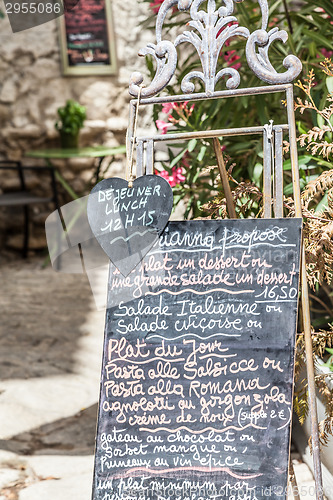 DEJEUNER
LUNCH
12H15
Propose
Plat un dessert ou
une grande salade un dessert
16,50
Salade Italienne ou
Salade niçoise ou
Plat du Jour
Pasta alle Salsicce ou
Pasta alla Romana
agnolotti au gorgonzola
crème de noix (supp. 2€
gateau au chocolat ou
sorbet mangue ou
Pruneaux au vin épice
un plat minimum par